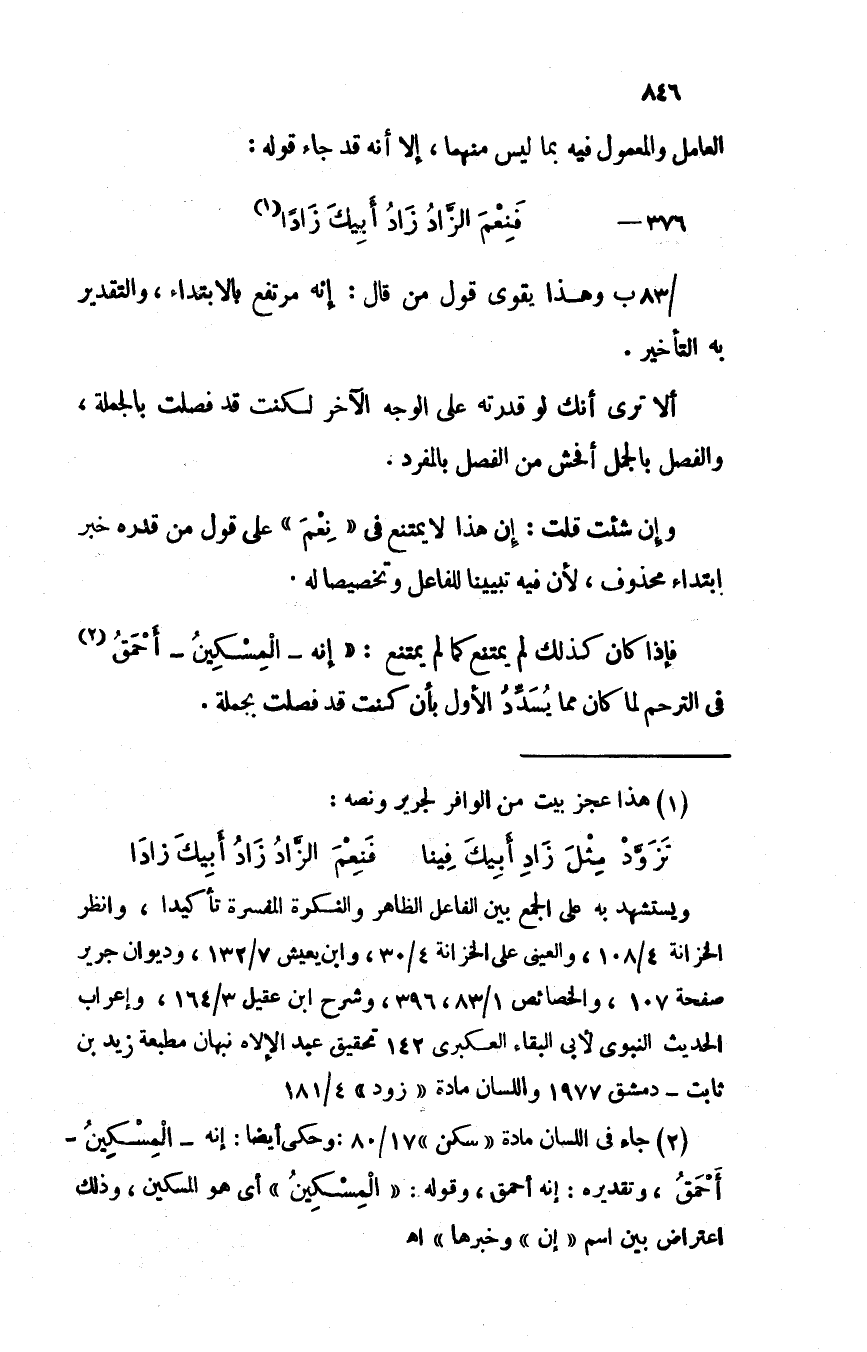 ٨٤٦
العامل والمعمول فيه بما ليس منهما ، إلا أنه قد جاء قوله :
٣٧٦ — فَنِعْمَ الزَّادُ زَادُ أَبِيكَ زَادًا(١)
/٨٣ب وهـذا يقوى قول من قال : إنه مرتفع بالابتداء ، والتقدير
به التأخير .
ألا ترى أنك لو قدرته على الوجه الآخر لـكنت قد فصلت بالجملة ،
والفصل بالجمل أفحش من الفصل بالمفرد .
وإن شئت قلت : إن هذا لا يمتنع فى « نِعْمَ » على قول من قدره خبر
ابتداء محذوف ، لأن فيه تبيينا للفاعل وتخصيصا له .
فإذا كان كذلك لم يمتنع كما لم يمتنع : « إنه ــ الْمِسْـكِينُ ــ أَحْمَقُ(٢)
فى الترحم لما كان مما يُسَدِّدُ الأول بأن كـنت قد فصلت بجملة .
(١) هذا عجز بيت من الوافر لجرير ونصه :
تَزَوَّدْ مِثْلَ زَادِ أَبِيكَ فِينا فَنِعْمَ الزَّادُ زَادُ أَبِيكَ زادَا
ويستشهد به على الجمع بين الفاعل الظاهر والنـكرة المفسرة تأكيدا ، وانظر
الخزانة ١٠٨/٤ ، والعينى على الخزانة ٣٠/٤ ، وابن يعيش ١٣٢/٧ ، وديوان جرير
صفحة ١٠٧ ، والخصائص ٨٣/١ ، ٣٩٦ ، وشرح ابن عقيل ١٦٤/٣ ، وإعراب
الحديث النبوى لأبى البقاء العـكبرى ١٤٢ تحقيق عبد الإلاه نبهان مطبعة زيد بن
ثابت ــ دمشق ١٩٧٧ واللسان مادة « زود » ١٨١/٤
(٢) جاء فى اللسان مادة « سكن » ٨٠/١٧ : وحكى أيضا : إنه ــ الْمِسْـكِينُ ــ
أَحْمَقُ ، وتقديره : إنه أحمق ، وقوله : « الْمِسْـكِينُ » أى هو المسكين ، وذلك
اعتراض بين اسم « إن » وخبرها » اهـ